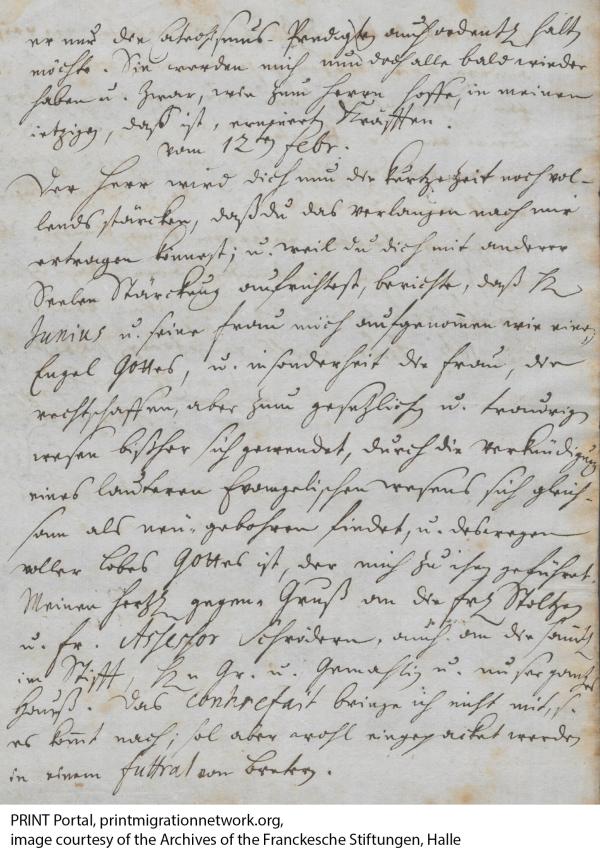 er nur den Catechismus-Predigten auch ordentl. halten
möchte. Sie werden mich nun doch alle bald wieder
haben u. zwar, wie zum Herrn hoffe, in meinen
ietzigen, daß ist, erneuerten Kräfften.
vom 12ten Febr.
Der Herr wird dich nun die kurtze Zeit noch vol-
lends stärcken, daß du das verlangen nach mir
ertragen könnest; u. weil du dich mit anderer
Seelen Stärckung aufrichtest, berichte, daß H.
Junius u. seine Frau mich aufgenommen wie einen
Engel Gottes, u. insonderheit die Frau, die
rechtschaffen, aber zum gesetzlichen u. traurigen
wesen bißher sich gewendet, durch die Verkündigung
eines lauteren Evangelischen wesens sich gleich-
sam als neu-gebohren findet, u. deswegen
voller Lobes Gottes ist, der mich zu ihr geführet.
Meinen hertzl. gegen-Gruß an die Stoltzen
u. Fr. Assessor Schrödern, auch an die sämtl.
im Stifft, H. Gr. u. Gemahlin u. unser gantzes
Hauß. Das Contrefait bringe ich nicht mit, s.
es kömt nach; sol aber wohl eingepacket werden
in einem Futtral von Bretern.
PRINT Portal, printmigrationnetwork.org,
image courtesy of the Archives of the Franckesche Stiftungen, Halle